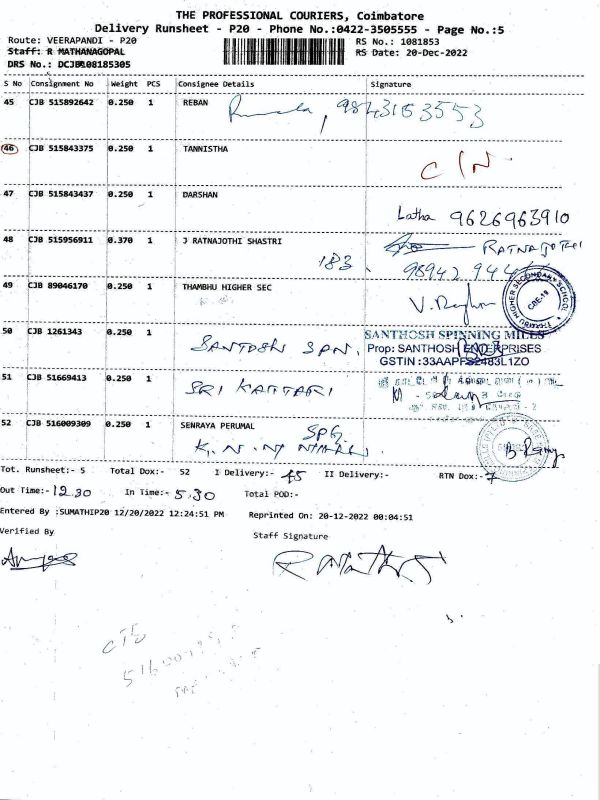 THE PROFESSIONAL COURIERS, Coimbatore
Delivery Runsheet - P20 - Phone No.:0422-3505555 - Page No.:5
Route: VEERAPANDI - P20 RS No.: 1081853
Staff: R MATHANAGOPAL RS Date: 20-Dec-2022
DRS No.: DCJB0108185305
S No Consignment No Weight PCS Consignee Details Signature
45 CJB 515892642 0.250 1 REBAN 9843153553
46 CJB 515843375 0.250 1 TANNISTHA C/N
47 CJB 515843437 0.250 1 DARSHAN
Latha 9626963910
48 CJB 515956911 0.370 1 J RATNAJOTHI SHASTRI
183
49 CJB 89046170 0.250 1 THAMBHU HIGHER SEC
50 CJB 1261343 0.250 1 SANTOSH SPN. SANTHOSH SPINNING MILLS
Prop: SANTHOSH ENTERPRISES
51 CJB 51669413 0.250 1 SRI
52 CJB 516009309 0.250 1 SENRAYA PERUMAL
Tot. Runsheet:- 5 Total Dox:- 52 I Delivery:- 45 II Delivery:- RTN Dox:- 7
Out Time:- 12.30 In Time:- 5.30 Total POD:-
Entered By :SUMATHIP20 12/20/2022 12:24:51 PM Reprinted On: 20-12-2022 00:04:51
Verified By Staff Signature